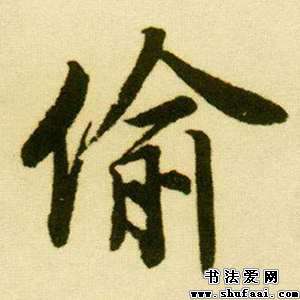 偷
书法爱网
www.shufaai.com